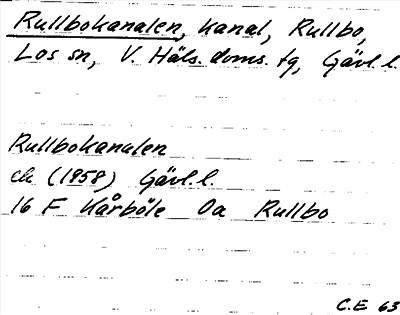 Rullbokanalen, kanal, Rullbo,
Los sn, V. Häls. doms. tg, Gävl. l.
Rullbokanalen
ek (1958) Gävl. l.
16 F Kårböle 0a Rullbo
C.E 63